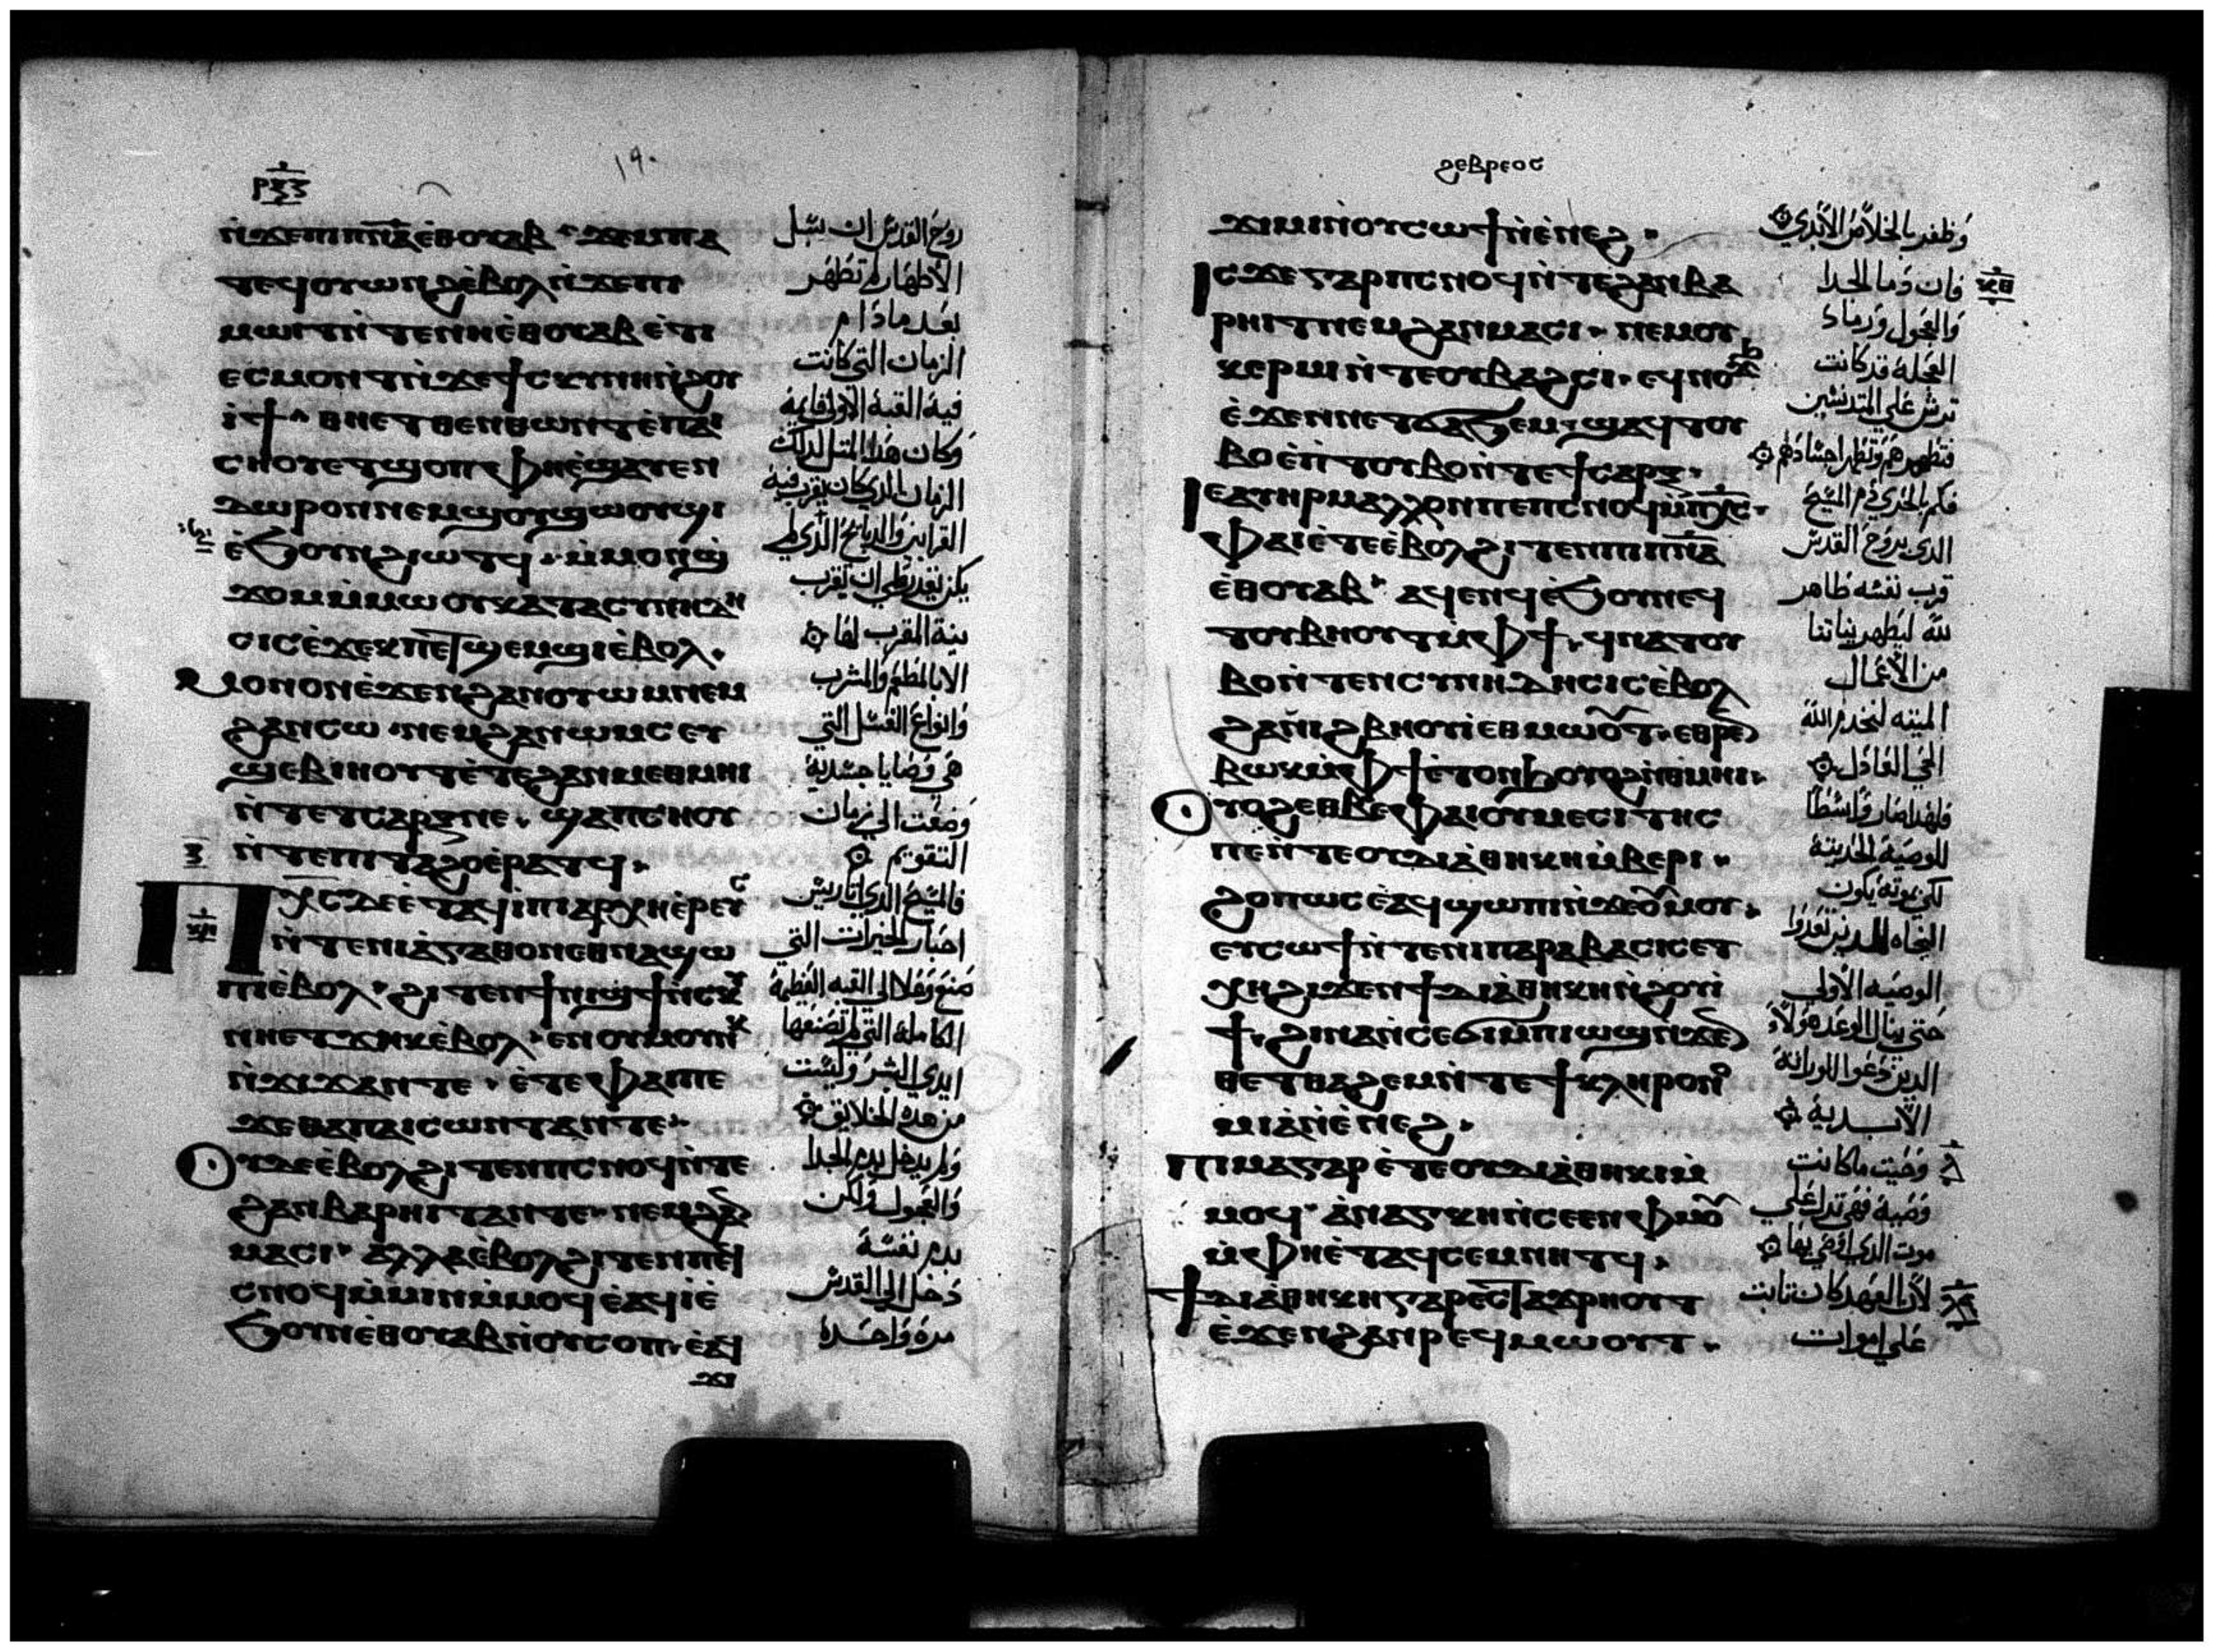 ⲣⲝⲍ
١٩٠
ⲛ̇ϫⲉⲡⲓⲡ̅ⲛ̅ⲁ̅ ⲉ̇ⲑⲟⲩⲁⲃ · ϫⲉⲙⲡⲁ
ⲧⲉϥⲟⲩⲱⲛϩ ⲉ̇ⲃⲟⲗ ⲛ̇ϫⲉⲡⲓ
ⲙⲱⲓⲧ ⲛ̇ⲧⲉⲛⲏⲉ̇ⲑⲟⲩⲁⲃ ⲉ̇ⲧⲓ
ⲉⲥⲙⲟⲛⲧ ⲛ̇ϫⲉϯⲥⲕⲩⲛⲏ ⲛ̇ϩⲟⲩ
ⲓ̇ϯ
ⲥⲏⲟⲩ ⲉⲧϣⲟⲡ · ⲫⲏⲉ̇ϣⲁⲩⲉⲛ
ⲇⲱⲣⲟⲛ ⲛⲉⲙ ϣⲟⲩϣⲱⲟⲩϣⲓ
ⲉ̇ϧⲟⲩⲛ ϩⲓⲱⲧϥ · ⲙ̇ⲙⲟⲛϣ̇
ϫⲟⲙ ⲙ̇ⲙⲱⲟⲩ ⲕⲁⲧⲁ ⲥⲩⲛⲏⲇⲏ
ⲥⲓⲥ ⲉ̇ϫⲉⲕ ⲡⲉⲧϣⲉⲙϣⲓ ⲉ̇ⲃⲟⲗ ·
ⲙⲟⲛⲟⲛ ⲉ̇ϫⲉⲛ ϩⲁⲛⲟⲩⲱⲙ ⲛⲉⲙ
ϩⲁⲛⲥⲱ · ⲛⲉⲙ ϩⲁⲛⲱⲙⲥ ⲉⲩ
ϣⲉⲃⲓⲏⲟⲩⲧ ⲉ̇ⲧⲉ ϩⲁⲛⲙⲉⲑⲙⲏⲓ
ⲛ̇ⲧⲉ ⲧⲥⲁⲣⲝ ⲛⲉ · ϣⲁ ⲡⲥⲏⲟⲩ
ⲛ̇ⲧⲉⲡⲓⲧⲁϩⲟ ⲉ̇ⲣⲁⲧϥ ·
ⲡⲭ̅ⲥ̅ ⲇⲉ ⲉ̇ⲧⲁϥⲓ̇ ⲡⲓⲁⲣⲭⲏⲉ̇ⲣⲉⲩⲥ
ⲛ̇ⲧⲉⲛⲓⲁ̇ⲅⲁⲑⲟⲛ ⲉⲑⲛⲁϣⲱ
ⲡⲓ ⲉ̇ⲃⲟⲗ · ϩⲓⲧⲉⲛ ϯⲛⲓϣϯ ⲛ̇ⲥⲕⲩ
ⲛⲏ ⲉⲧϫⲏⲕ ⲉ̇ⲃⲟⲗ · ⲉⲛⲟⲩⲙⲟⲩⲛⲕ
ⲛ̇ϫⲓϫ ⲁⲛ ⲧⲉ · ⲉ̇ⲧⲉ ⲫⲁⲓ ⲡⲉ
ϫⲉ ⲑⲁⲡⲁⲓⲥⲱⲛⲧ ⲁⲛ ⲧⲉ ·
ⲟⲩⲇⲉ ⲉ̇ⲃⲟⲗ ϩⲓⲧⲉⲛ ⲡⲥⲛⲟϥ ⲛ̇ⲧⲉ
ϩⲁⲛⲃⲁⲣⲏⲓⲧ ⲁⲛ ⲧⲉ · ⲛⲉⲙ ϩⲁⲛ
ⲙⲁⲥⲓ · ⲁⲗⲗⲁ ⲉ̇ⲃⲟⲗ ϩⲓⲧⲉⲛ ⲡⲉϥ
ⲥⲛⲟϥ ⲙ̇ⲙⲓⲛ ⲙ̇ⲙⲟϥ ⲉ̇ⲁϥⲓ̇ ⲉ̇
ϧⲟⲩⲛ ⲉ̇ⲑⲟⲩⲁⲃ ⲛ̇ⲟⲩⲥⲟⲡ · ⲉ̇ⲁϥ
ϫⲓ
روح القدس ان سبل
الاطهار لم تظهر
بعد ما دام
الزمان التي كانت
فيه القبة الاولي قايمة
وكان هذا المثل لذلك
الزمان الذي كان يقرب فيه
القرابين والذبايح الذي لم
يكن تقدر علي ان تقرب
بنية المقرب لها
الا بالمطعم والمشرب
وانواع الغسل التي
هي وصايا جسدية
وضعت الي زمان
التقويم
فالمسيح الذي اتا ريس
احبار الخيرات التي
الكاملة التي لم تصنعها
ايدي البشر وليست
من هذه الخلايق
ولم يدخل بدم الجدا
والعجول ولكن
بدم نفسة
دخل الي القدس
مرة واحدة
ϩⲉⲃⲣⲉⲟⲥ
ϫⲓⲙⲓ ⲛ̇ⲟⲩⲥⲱϯ ⲛ̇ⲉ̇ⲛⲉϩ ·
ⲓⲥϫⲉ ⲅⲁⲣ ⲡⲥⲛⲟϥ ⲛ̇ⲧⲉ ϩⲁⲛⲃⲁ
ⲣⲏⲓⲧ ⲛⲉⲙ ϩⲁⲛⲙⲁⲥⲓ · ⲛⲉⲙ ⲟⲩ
ⲕⲉⲣⲙⲓ ⲛ̇ⲧⲉ ⲟⲩⲃⲁϩⲥⲓ · ⲉϥⲛⲟⲩϫϧ
ⲉ̇ϫⲉⲛ ⲛⲉⲧϭⲁϧⲉⲙ · ϣⲁϥⲧⲟⲩ
ⲃⲟ ⲉ̇ⲛ̇ⲧⲟⲩⲃⲟ ⲛ̇ⲧⲉ ϯⲥⲁⲣⲝ ·
ⲓⲉ ⲁⲩⲏⲣ ⲙⲁⲗⲗⲟⲛ ⲡⲉ ⲡⲥⲛⲟϥ ⲙ̇ⲡⲭ̅ⲥ̅ ·
ⲫⲁⲓ ⲉ̇ⲧⲉ ⲉ̇ⲃⲟⲗ ϩⲓⲧⲉⲛ ⲡⲓⲡ̅ⲛ̅ⲁ̅
ⲉ̇ⲑⲟⲩⲁⲃ · ⲁϥⲉⲛϥ ⲉ̇ϧⲟⲩⲛ ⲉϥ
ⲧⲟⲩⲃⲏⲟⲩⲧ ⲙ̇ⲫϯ · ϥⲛⲁⲧⲟⲩ
ⲃⲟ ⲛ̇ⲧⲉⲛⲥⲩⲛⲏⲇⲏⲥⲓⲥ ⲉ̇ⲃⲟⲗ
ϩⲁⲛⲓϩⲃⲏⲟⲩⲓ̇ ⲉⲑⲙⲱⲟⲩⲧ · ⲉⲑⲣⲉⲛ
ⲃⲱⲕ ⲙ̇ⲫϯ ⲉ̇ⲧⲟⲛϧ ⲟⲩⲟϩ ⲛ̇ⲑⲙⲏⲓ ·
ⲟⲩⲟϩ ⲉⲑⲃⲉ ⲫⲁⲓ ⲟⲩⲙⲉⲥⲓⲧⲏⲥ
ⲡⲉ ⲛ̇ⲧⲉ ⲟⲩⲇⲓⲁ̇ⲑⲏⲕⲏ ⲙ̇ⲃⲉⲣⲓ ·
ϩⲟⲡⲱⲥ ⲉ̇ⲁϥϣⲱⲡⲓ ⲛ̇ϫⲉ ⲟⲩⲙⲟⲩ ·
ⲉⲩⲥⲱϯ ⲛ̇ⲧⲉ ⲛⲓⲡⲁⲣⲁⲃⲁⲥⲓⲥ ⲉⲩ
ⲭⲏ ϩⲓϫⲉⲛ ϯⲇⲓⲁ̇ⲑⲏⲕⲏ ⲛ̇ϩⲟⲩⲓ̇
ϯ · ϩⲓⲛⲁ ⲛ̇ⲥⲉϭⲓ ⲙ̇ⲡⲓⲱϣ ⲛ̇ϫⲉ ⲛⲏ
ⲉⲧⲑⲁϩⲉⲙ ⲛ̇ⲧⲉ ϯⲕⲗⲏⲣⲟⲛⲟ
ⲙⲓⲁ̇ ⲛ̇ⲉ̇ⲛⲉϩ ·
ⲡⲓⲙⲁ ⲅⲁⲣ ⲉ̇ⲧⲉ ⲟⲩⲇⲓⲁ̇ⲑⲏⲕⲏ ⲙ̇
ⲙⲟϥ · ⲁ̇ⲛⲁⲅⲕⲏ ⲛ̇ⲥⲉⲉⲛ ⲫⲙⲟⲩ
ⲙ̇ⲫⲏⲉ̇ⲧⲁϥⲥⲉⲙⲛⲏⲧϥ ·
ϯⲇⲓⲁ̇ⲑⲏⲕⲏ ⲅⲁⲣ ⲉⲥⲧⲁϫⲣⲏⲟⲩⲧ
ⲉ̇ϫⲉⲛ ϩⲁⲛⲣⲉϥⲙⲱⲟⲩⲧ ·
وظفر بالخلاص الابدي
فان دما الجدا
والعجول ورماد
العجلة قد كانت
ترش علي المتدنسين
فتطهرهم وتطهر اجسادهم
فكم بالحري دم المسيح
الذي بروح القدس
قرب نفسه طاهر
لله ليطهر نياتنا
من الاعمال
الميته لنخدم الله
الحي العادل
فلهذا صار واسطا
للوصية الحديثة
لكي بموته يكون
الوصيه الاولي
حتي ينال الوعد هولاء
الذين دعوا للوراثة
الابدية
وحيث ما كانت
وصية فهي تدل علي
موت الذي اوصي بها
لان العهد كان ثابت
علي اموات